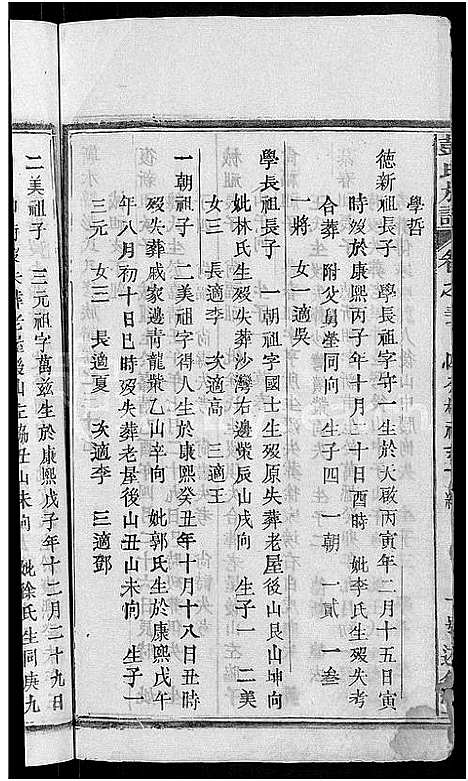 學哲
德新祖長子 學長祖字守一生於大啟丙寅年二月十五日寅
時歿於康熙丙子年十月二十日酉時 妣李氏生歿失考
合葬 附父舅塋同向 生子四 一朝 一貳 一叁
一將 女一 適吳
學長祖長子 一朝祖字國士生歿原失葬老屋後山艮山坤向
妣林氏生歿失葬沙灣右邊葉辰山戌向 生子一 二美
女三 長適李 次適高 三適王
一朝祖子 二美祖字得人生於康熙癸丑年十月十八日丑時
歿失葬戚家邊青龍嘴乙山辛向 妣郭氏生於康熙戊午
年八月初十日巳時歿失葬老屋後山丑山未向 生子一
三元 女三 長適夏 次適李 三適鄧
二美祖子 三元祖字萬茲生於康熙戊子年十二月二十九日
妣徐氏生同庚九